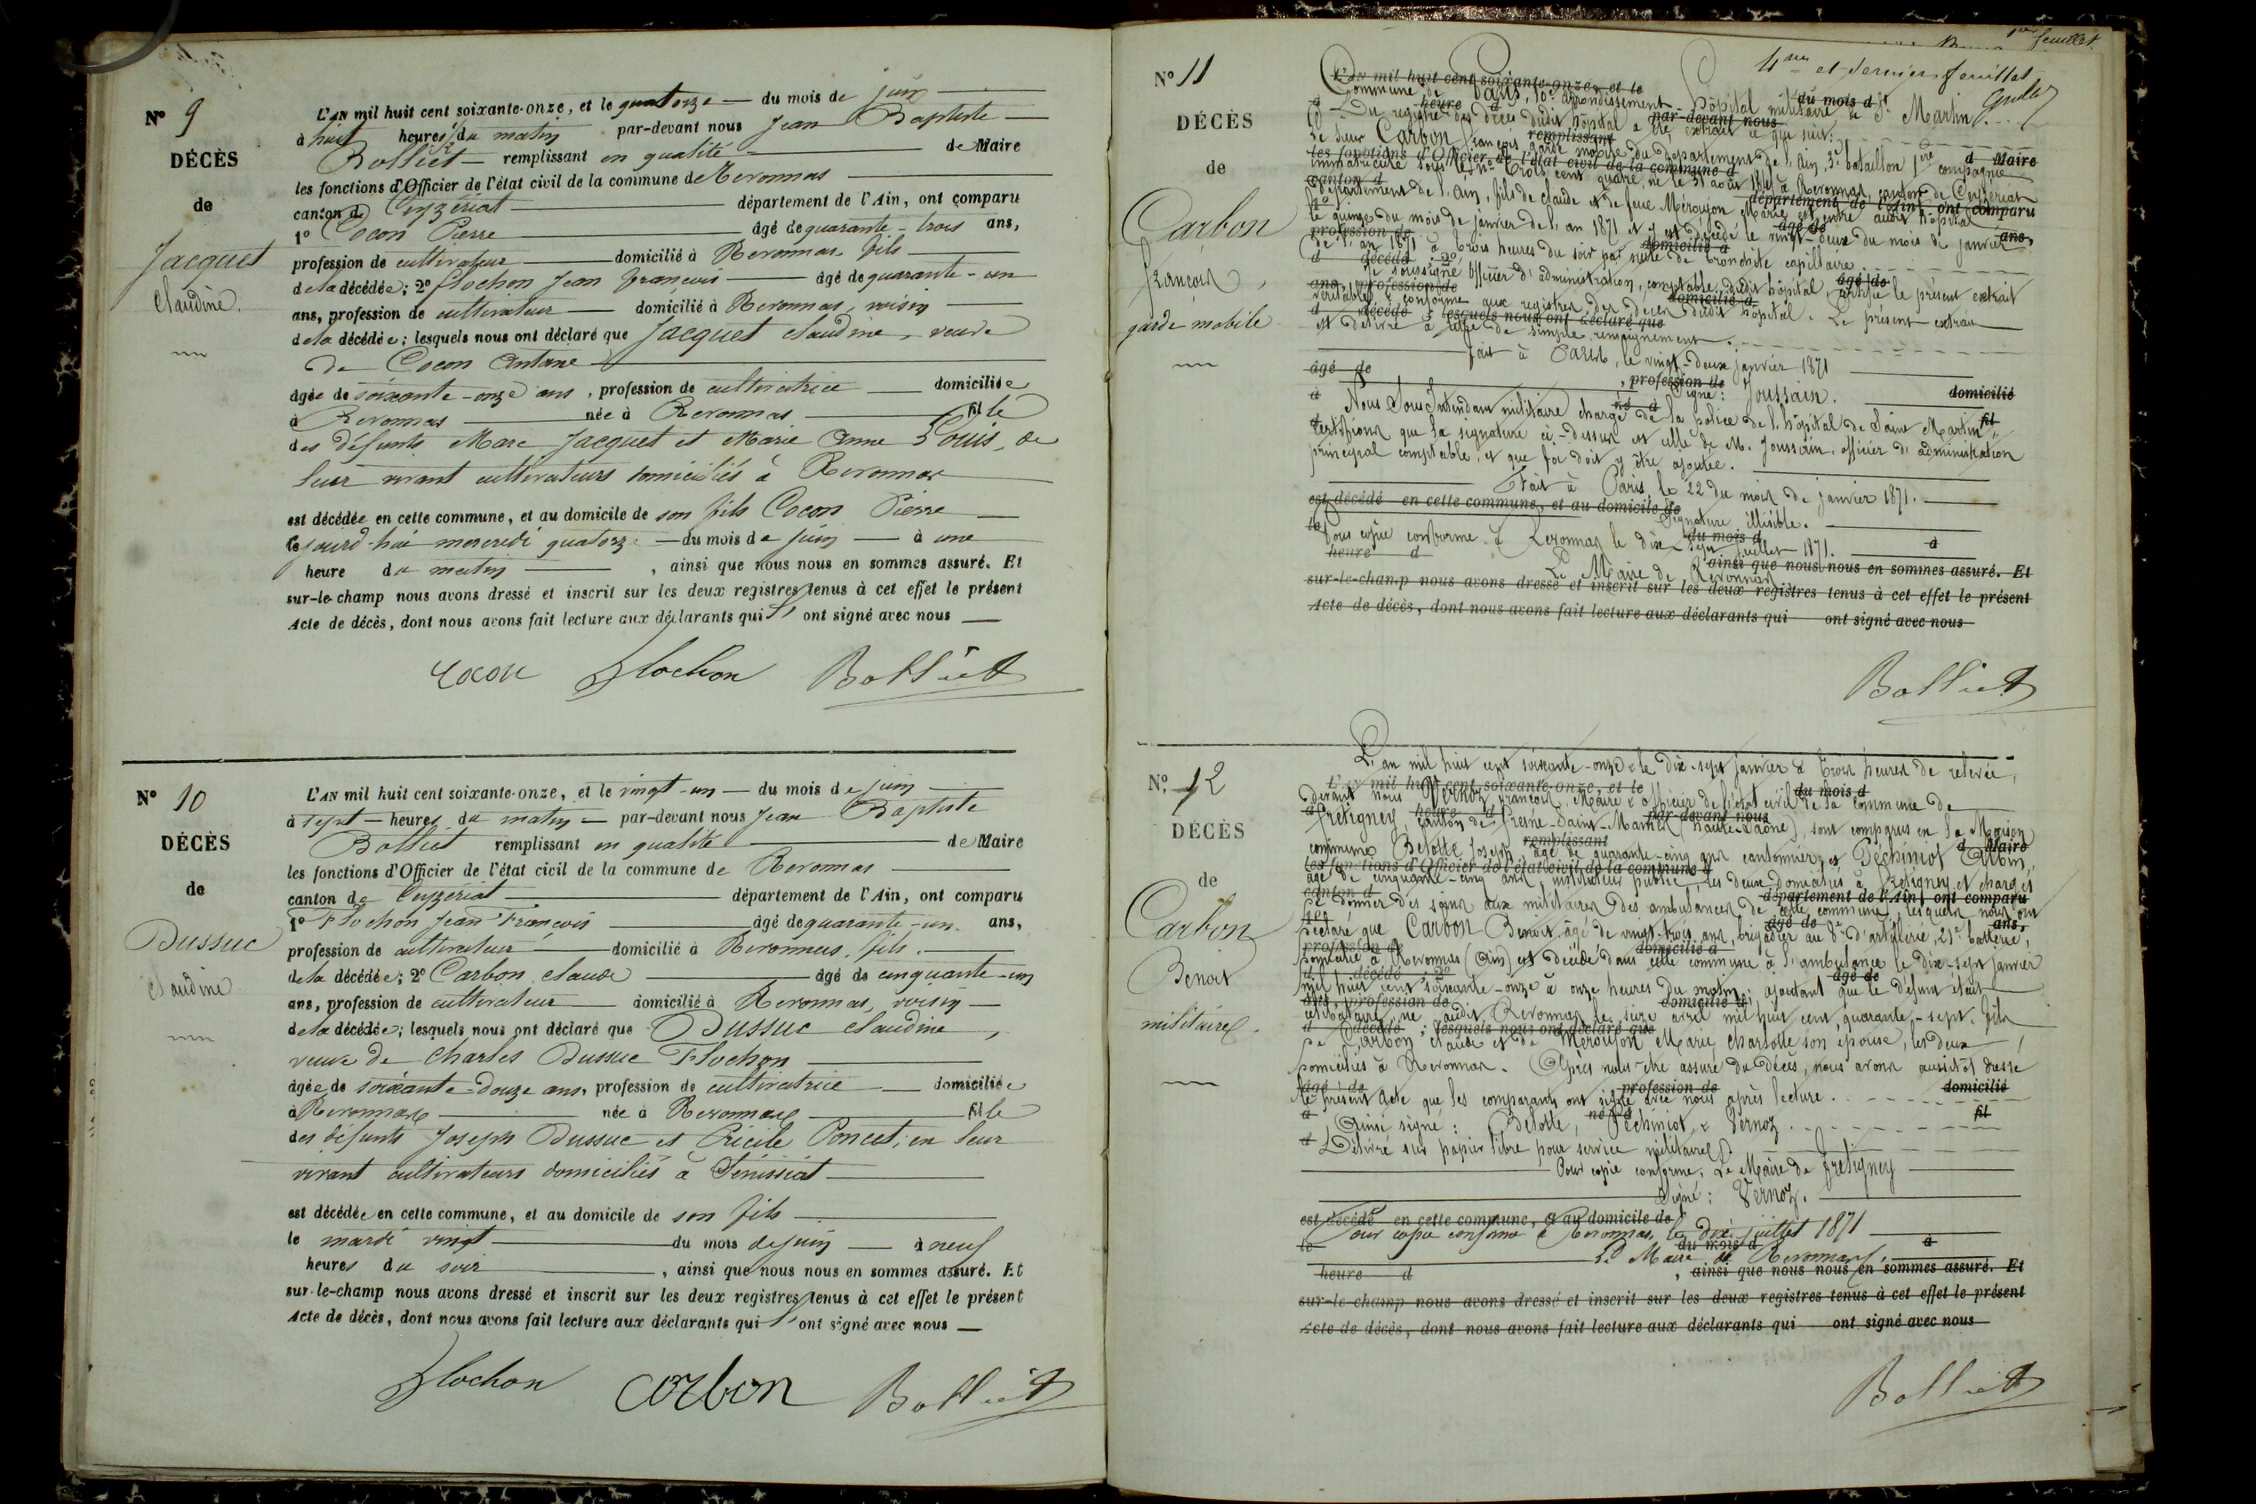 N° 9
DÉCÈS
de
Jacquet
Claudine.
L'AN mil huit cent soixante-onze, et le quatorze — du mois de juin
à huit heures du matin par-devant nous Jean Baptiste
Bolliet — remplissant en qualité de Maire
les fonctions d'Officier de l'état civil de la commune de Revonnas
canton de Ceyzériat département de l'Ain, ont comparu
1° Cocon Pierre âgé de quarante-trois ans,
profession de cultivateur domicilié à Revonnas, fils
de la décédée; 2° Flochon Jean François âgé de quarante-un
ans, profession de cultivateur domicilié à Revonnas, voisin
de la décédée; lesquels nous ont déclaré que Jacquet Claudine, veuve
de Cocon Antoine
âgée de soixante-onze ans, profession de cultivatrice domiciliée
à Revonnas née à Revonnas fille
des défunts Marc Jacquet et Marie Anne Louis, de
leur vivant cultivateurs domiciliés à Revonnas
est décédée en cette commune, et au domicile de son fils Cocon Pierre
le jourd'hui mercredi quatorze — du mois de juin — à une
heure du matin, ainsi que nous nous en sommes assuré. Et
sur-le-champ nous avons dressé et inscrit sur les deux registres tenus à cet effet le présent
Acte de décès, dont nous avons fait lecture aux déclarants qui ont signé avec nous
Cocon Flochon Bolliet
N° 10
DÉCÈS
de
Dussuc
Claudine
L'AN mil huit cent soixante-onze, et le vingt-un — du mois de juin
à sept — heures du matin — par-devant nous Jean Baptiste
Bolliet remplissant en qualité de Maire
les fonctions d'Officier de l'état civil de la commune de Revonnas
canton de Ceyzériat département de l'Ain, ont comparu
1° Flochon Jean François âgé de quarante-un ans,
profession de cultivateur domicilié à Revonnas, fils
de la décédée; 2° Carbon Claude âgé de cinquante-un
ans, profession de cultivateur domicilié à Revonnas, voisin
de la décédée; lesquels nous ont déclaré que Dussuc Claudine,
veuve de Charles Dussuc Flochon
âgée de soixante-douze ans, profession de cultivatrice domiciliée
à Revonnas née à Revonnas fille
des défunts Joseph Dussuc et Poncet, en leur
vivant cultivateurs domiciliés à Sénissiat
est décédée en cette commune, et au domicile de son fils
le mardi vingt du mois de juin — à neuf
heures du soir, ainsi que nous nous en sommes assuré. Et
sur-le-champ nous avons dressé et inscrit sur les deux registres tenus à cet effet le présent
Acte de décès, dont nous avons fait lecture aux déclarants qui ont signé avec nous
Flochon Corbon Bolliet
feuillet
4me et dernier feuillet
N° 11
DÉCÈS
de
Carbon
François,
garde mobile
L'AN mil huit cent soixante-onze, et le
Commune de Paris, 10e arrondissement — Hôpital militaire de St Martin
Du registre des décès dudit hôpital a été extrait ce qui suit:
Le sieur Carbon François garde mobile du département de l'Ain, 3e bataillon 1ère compagnie
immatriculé sous le n° trois cent quatre, né le 31 août à Revonnas, canton de Ceyzériat
département de l'Ain, fils de Claude et de feue Mérouson Marie est entré audit hôpital
le quinze du mois de janvier de l'an 1871 et y est décédé le vingt-deux du mois de janvier
de l'an 1871 à trois heures du soir par suite de bronchite capillaire.
Je soussigné officier d'administration, comptable dudit hôpital, certifie le présent extrait
véritable & conforme aux registres des décès dudit hôpital. Le présent extrait
est délivré à titre de simple renseignement.
Fait à Paris, le vingt-deux janvier 1871
Signé: Joussain.
Nous Sous Intendant militaire chargé de la police de l'hôpital de Saint Martin
certifions que la signature ci-dessus est celle de M. Joussain, officier d'administration
principal comptable, et que foi doit y être ajoutée.
Fait à Paris, le 22 du mois de janvier 1871.
est décédé en cette commune, et au domicile de
Signature illisible.
Pour copie conforme à Revonnas le dix juillet 1871.
Le Maire de Revonnas
ainsi que nous nous en sommes assuré. Et
sur-le-champ nous avons dressé et inscrit sur les deux registres tenus à cet effet le présent
Acte de décès, dont nous avons fait lecture aux déclarants qui ont signé avec nous
Bolliet
N° 12
DÉCÈS
de
Carbon
Benoit
militaire.
L'an mil huit cent soixante-onze & le dix-sept janvier à trois heures de relevée,
L'AN mil huit cent soixante-onze, et le du mois d
devant nous Vernoz François, Maire & officier de l'état civil de la commune de
Fretigney, canton de Fresne-Saint-Mamès (Haute-Saône), sont comparus en la Maison
commune Belotte Joseph âgé de quarante-cinq ans cantonnier, et Péchiniot Urbin,
âgé de cinquante-cinq ans, instituteur public, les deux domiciliés à Fretigney et chargés
de donner des soins aux militaires des ambulances de cette commune, lesquels nous ont
déclaré que Carbon Benoit, âgé de vingt-trois ans, brigadier au 8e d'artillerie, 21e batterie,
domicilié à Revonnas (Ain) est décédé dans cette commune à l'ambulance le dix-sept janvier
mil huit cent soixante-onze à onze heures du matin; ajoutant que le défunt était
célibataire, né audit Revonnas le seize avril mil huit cent quarante-sept, fils
de Carbon Claude et de Mérouson Marie Charlotte son épouse, les deux
domiciliés à Revonnas. Après nous être assuré du décès, nous avons aussitôt dressé
le présent acte que les comparants ont signé avec nous après lecture.
Ainsi signé: Belotte, Péchiniot, & Vernoz
Délivré sur papier libre pour service militaire
Pour copie conforme, Le Maire de Fretigney
Signé: Vernoz.
est décédé en cette commune, et au domicile de
Pour copie conforme à Revonnas, le dix juillet 1871
Le Maire de Revonnas
heure d, ainsi que nous nous en sommes assuré. Et
sur-le-champ nous avons dressé et inscrit sur les deux registres tenus à cet effet le présent
Acte de décès, dont nous avons fait lecture aux déclarants qui ont signé avec nous
Bolliet